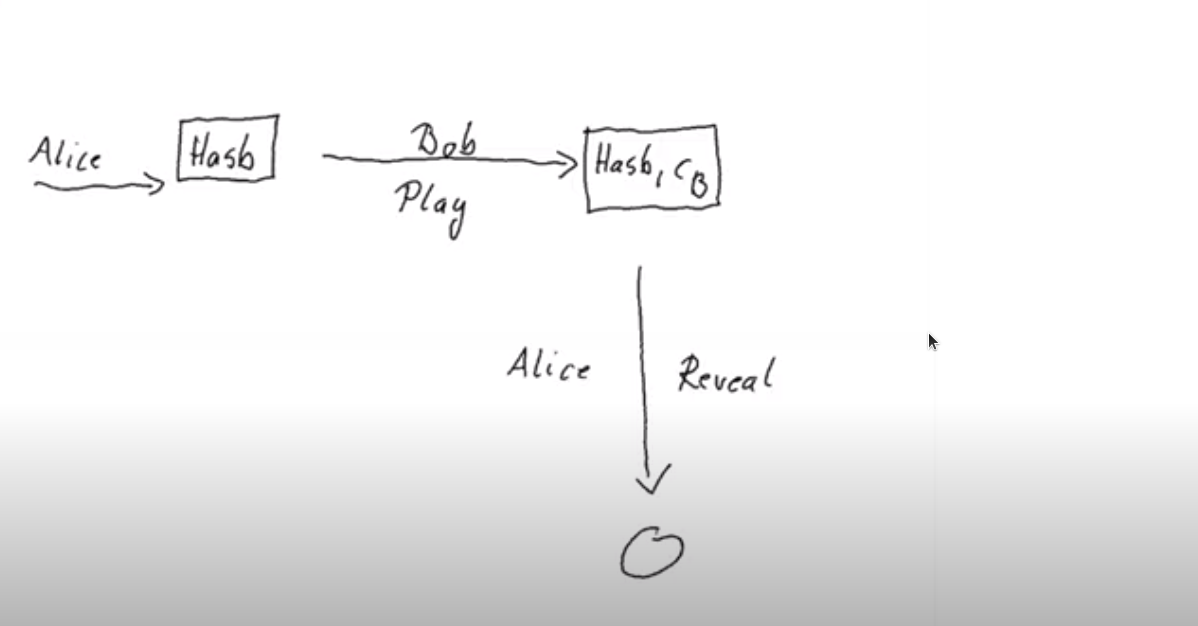 Alice
Hash
Bob
Play
Hash, CB
Alice
Reveal